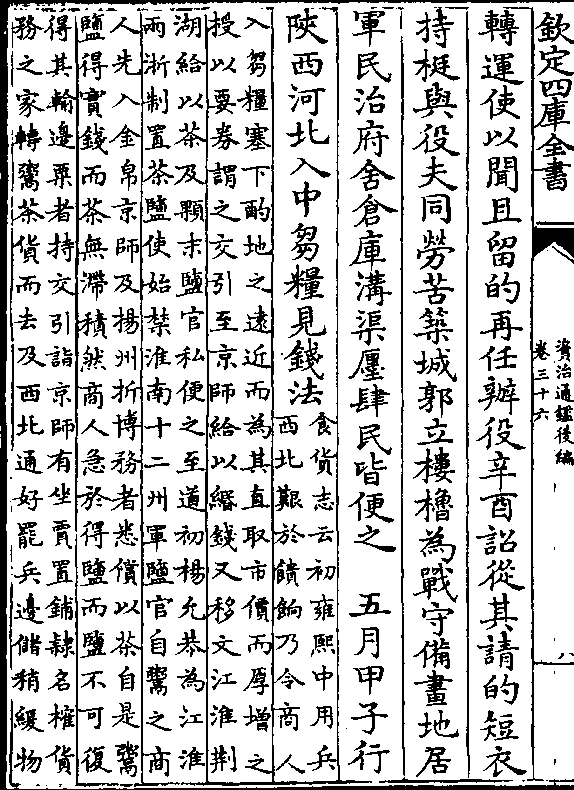 欽定四庫全書
資治通鑑後編
卷三十六
八
轉運使以聞且留的再任辦役辛酉詔從其請的短衣
持梃與役夫同勞苦築城郭立樓櫓為戰守備畫地居
軍民治府舍倉庫溝渠廛肆民皆便之　五月甲子行
陜西河北入中芻糧見錢法
食貨志云初雍熙中用兵
西北艱於饋餉乃令商人
入芻糧塞下酌地之遠近而為其直取市價而厚增之
授以要券謂之交引至京師給以緡錢又移文江淮荆
湖給以茶及顆末鹽官私便之至道初楊允恭為江淮
兩浙制置茶鹽使始禁淮南十二州軍鹽官自鬻之商
人先入金帛京師及揚州折博務者悉償以茶自是鬻
鹽得實錢而茶無滯積然商人急於得鹽而鹽不可復
得其輸邊粟者持交引詣京師有坐賈置鋪隸名榷貨
務之家轉鬻茶貨而去及西北通好罷兵邊儲稍緩物